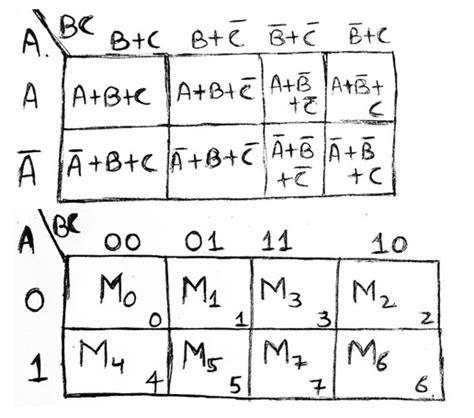 A. BC B+C B+C̅ B̅+C̅ B̅+C
A A+B+C A+B+C̅ A+B̅+C̅ A+B̅+C
A̅ A̅+B+C A̅+B+C̅ A̅+B̅+C̅ A̅+B̅+C
A BC 00 01 11 10
0 M₀ 0 M₁ 1 M₃ 3 M₂ 2
1 M₄ 4 M₅ 5 M₇ 7 M₆ 6